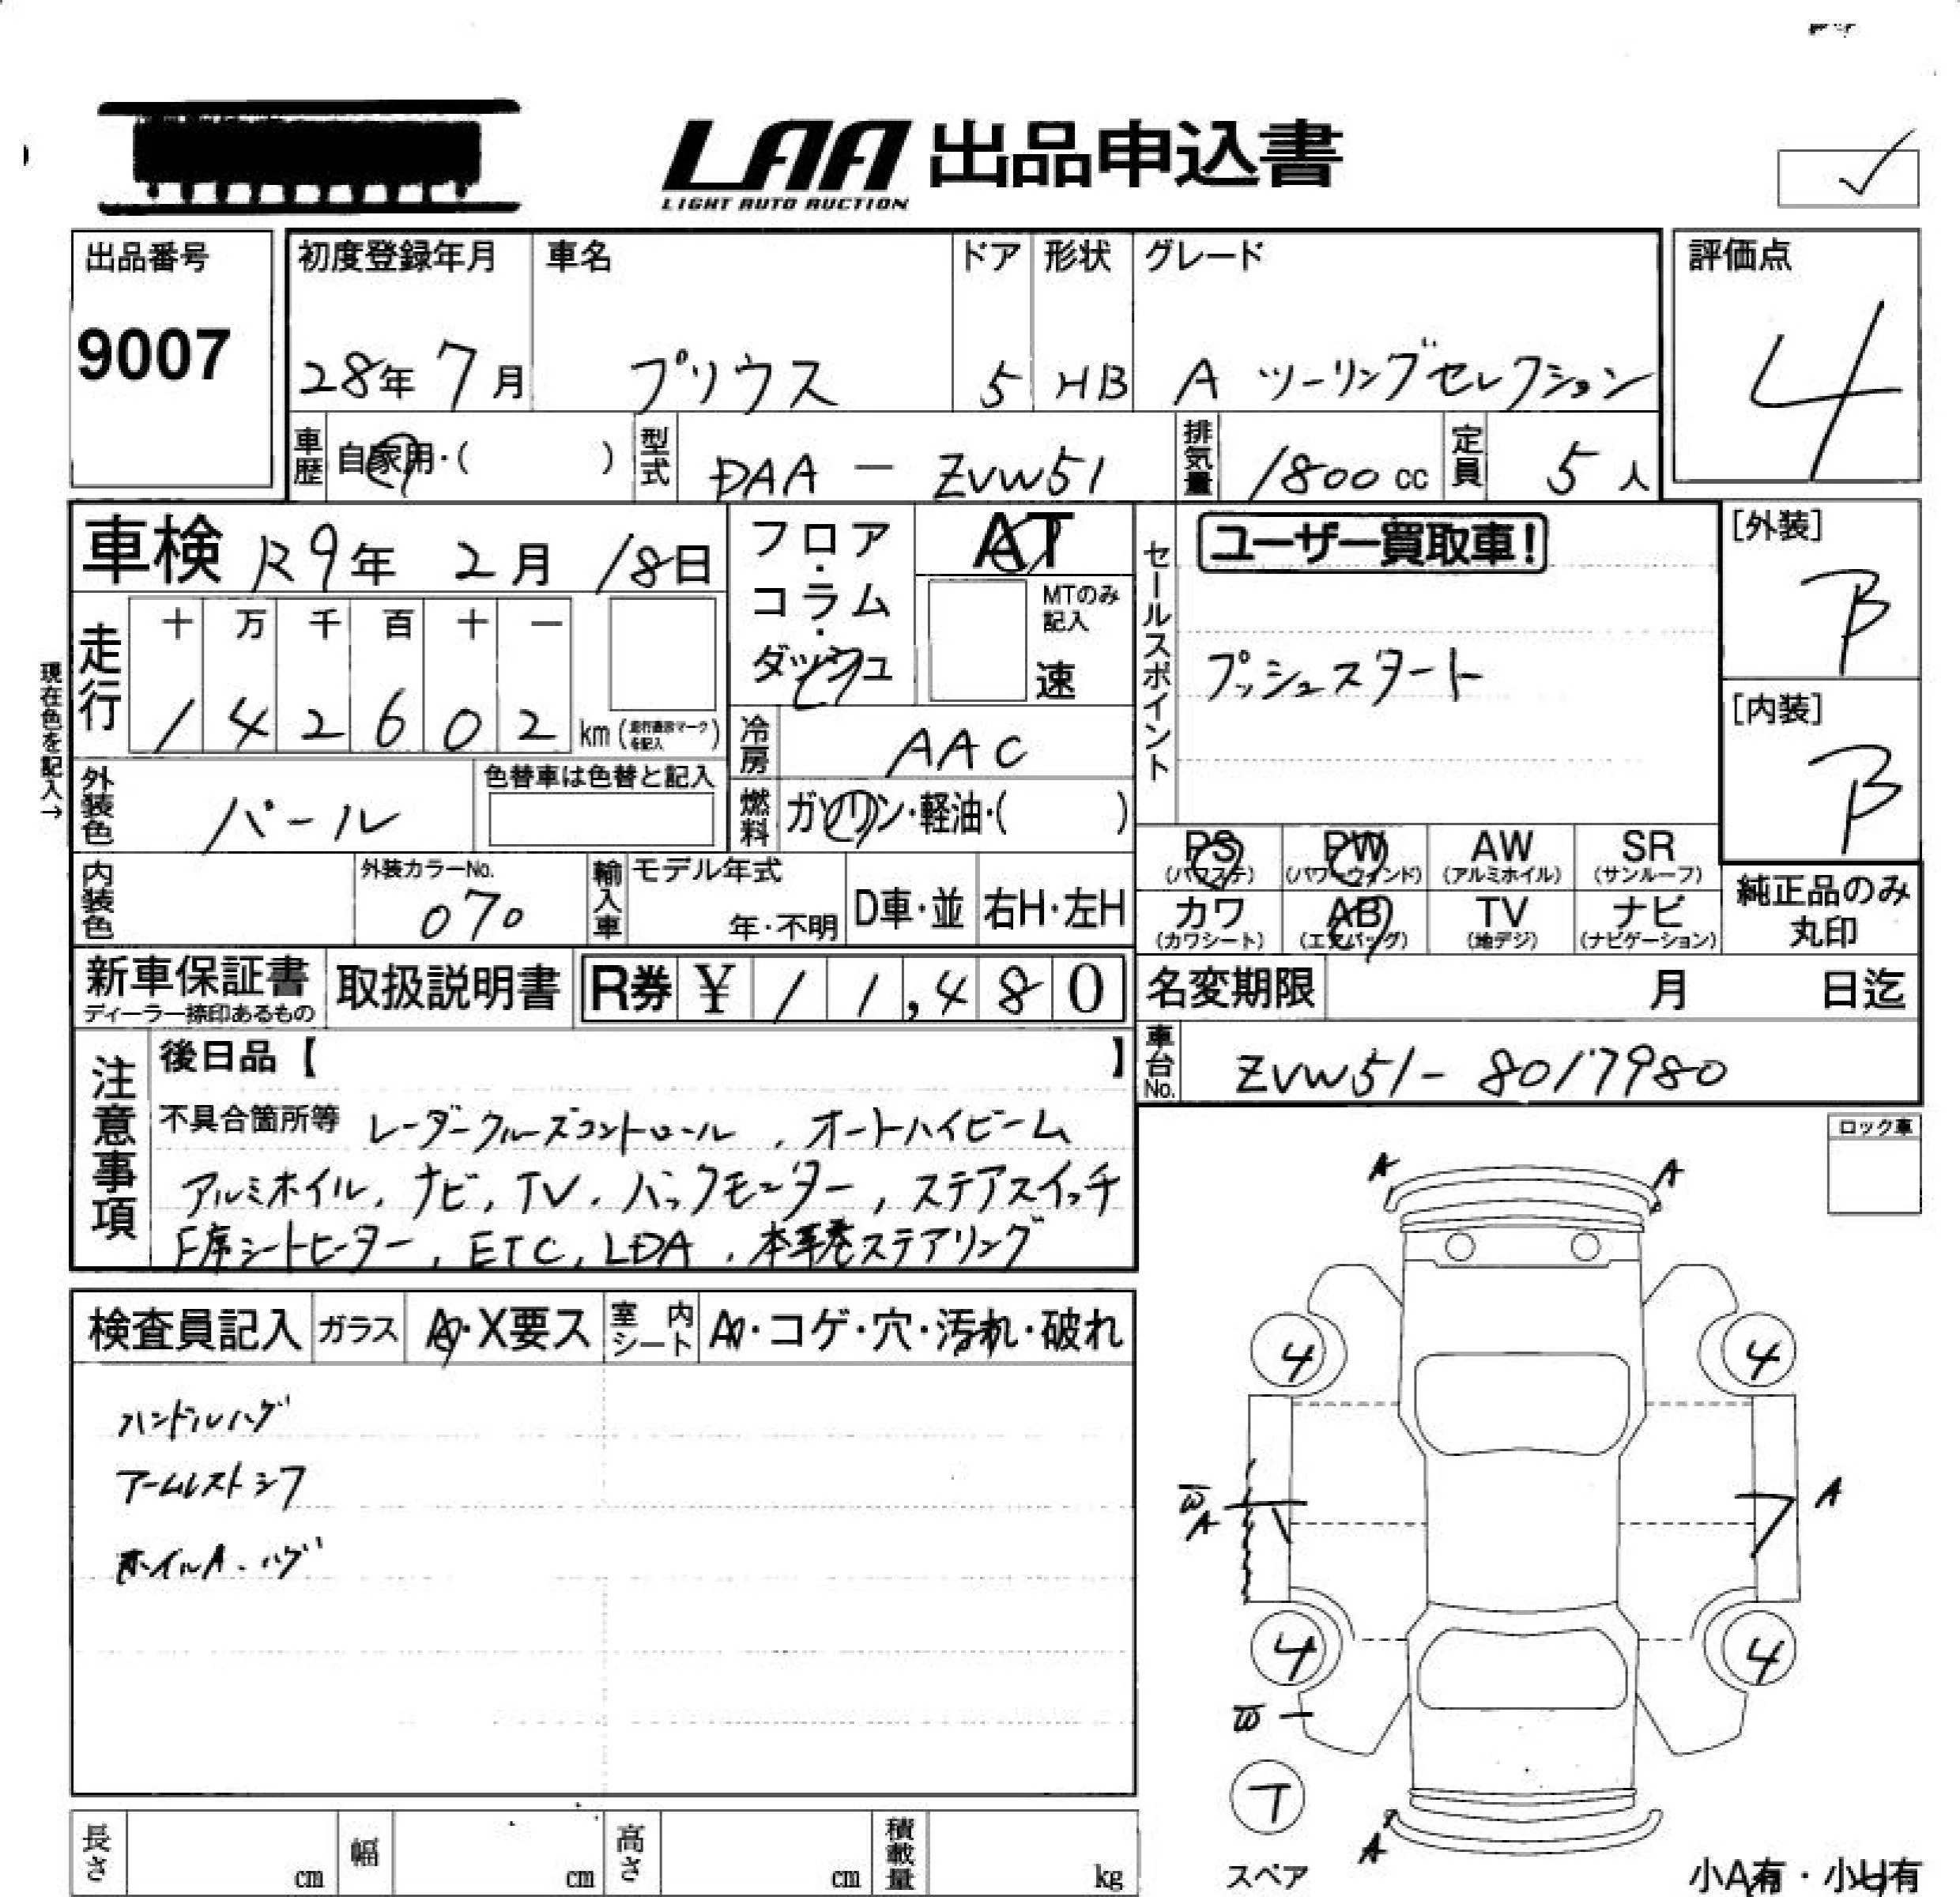 LAA 出品申込書
LIGHT AUTO AUCTION
出品番号
9007
初度登録年月
28年 7月
車名
プリウス
ドア
5
形状
HB
グレード
A ツーリングセレクション
評価点
4
車歴 自家用・( )
型式 DAA - ZVW51
排気量 1800 cc
定員 5 人
車検 R9年 2月 18日
フロア・コラム・ダッシュ
AT
MTのみ記入
速
セールスポイント
ユーザー買取車!
プッシュスタート
[外装]
B
[内装]
B
現在色を記入→
走行
十 万 千 百 十 一
1 4 2 6 0 2 km (走行表示マークを記入)
冷房 AAC
外装色 パール
色替車は色替と記入
燃料 ガソリン・軽油・( )
PS (パワステ) PW (パワーウィンド) AW (アルミホイル) SR (サンルーフ)
カワ (カワシート) AB (エアバッグ) TV (地デジ) ナビ (ナビゲーション)
純正品のみ
丸印
内装色
外装カラーNo.
070
輸入車
モデル年式
年・不明
D車・並
右H・左H
新車保証書
ディーラー捺印あるもの
取扱説明書
R券 ¥ 11,480
名変期限 月 日迄
車台No. ZVW51-8017980
注意事項
後日品【 】
不具合箇所等 レーダークルーズコントロール、オートハイビーム
アルミホイル、ナビ、TV、バックモニター、ステアスイッチ
F席シートヒーター、ETC、LDA、本革巻ステアリング
ロック車
検査員記入 ガラス A・X要ス 室内シート A・コゲ・穴・汚れ・破れ
ハンドルハゲ
アームレストシワ
ホイルA・ハゲ
A A
4 4
W
A
A
4 4
W
T
スペア
A
小A有・小U有
長さ cm 幅 cm 高さ cm 積載量 kg